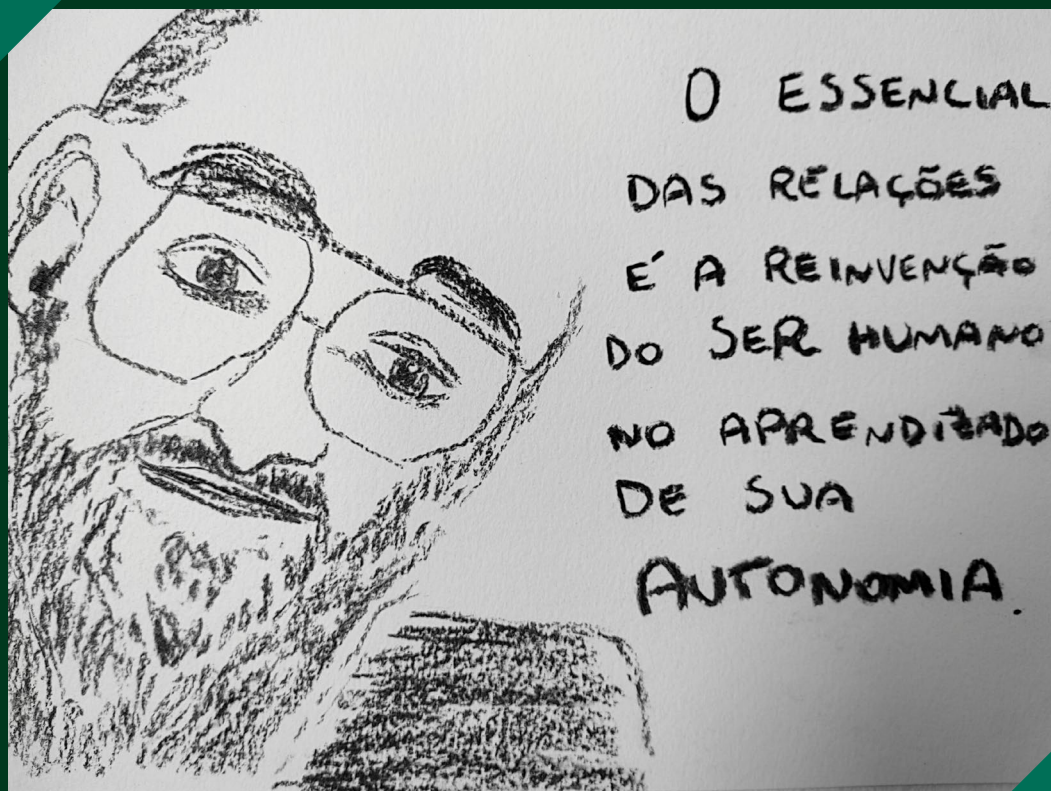 O ESSENCIAL
DAS RELAÇÕES
É A REINVENÇÃO
DO SER HUMANO
NO APRENDIZADO
DE SUA
AUTONOMIA.